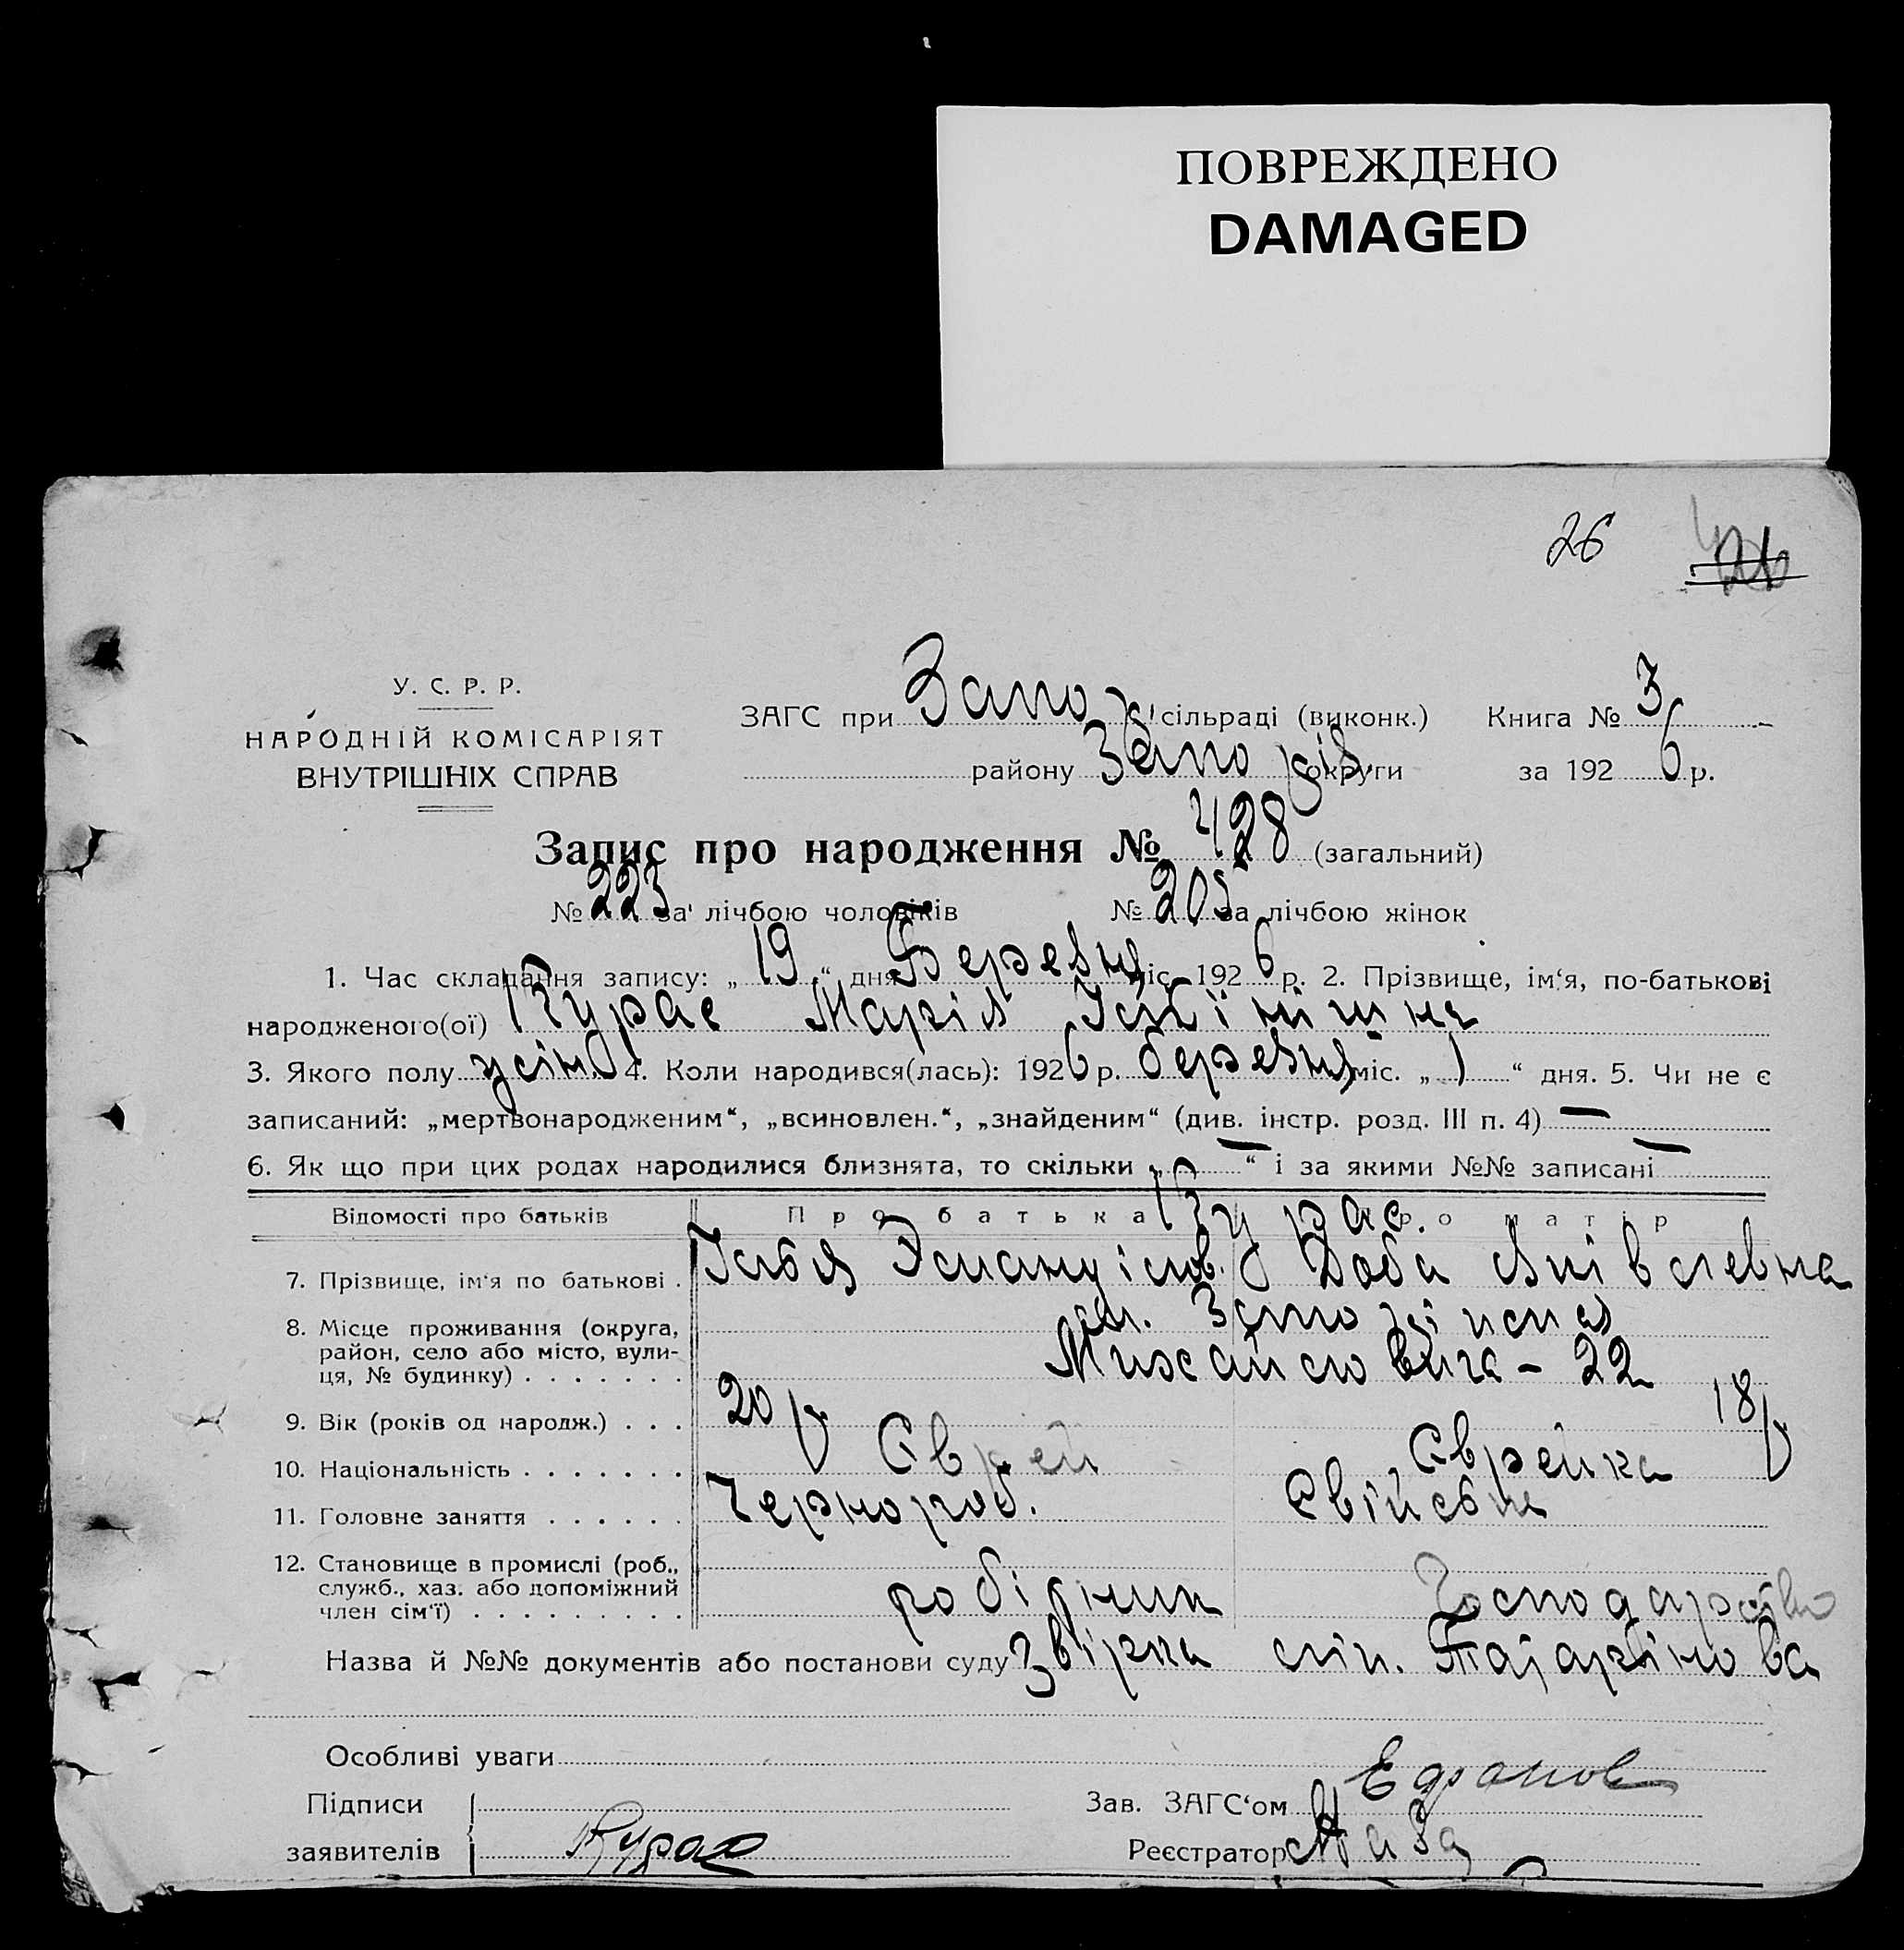 ПОВРЕЖДЕНО
DAMAGED
26
26
У. С. Р. Р.
НАРОДНІЙ КОМІСАРІЯТ
ВНУТРІШНІХ СПРАВ
ЗАГС при Запор сільраді (виконк.) Книга № 3
району Запоріз округи за 1926 р.
Запис про народження № 428 (загальний)
№ 223 за лічбою чоловіків № 205 за лічбою жінок
1. Час складання запису: „19“ дня Березня міс. 1926 р. 2. Прізвище, ім'я, по-батькові
народженого(ої) Курас Марія
3. Якого полу жіноч 4. Коли народився(лась): 1926 р. березня міс. „1“ дня. 5. Чи не є
записаний: „мертвонародженим“, „всиновлен.“, „знайденим“ (див. інстр. розд. III п. 4) —
6. Як що при цих родах народилися близнята, то скільки „—“ і за якими №№ записані —
Відомості про батьків Про батька Про матір
Курас.
7. Прізвище, ім'я по батькові . Доба
8. Місце проживання (округа, район, село або місто, вулиця, № будинку) . . . . . . . м. Запоріжжя
Михайловська - 22
9. Вік (років од народж.) . . . 20 р 18 р
10. Національність . . . . . . . Єврей Єврейка
11. Головне заняття . . . . . . Чернороб. Свійське
12. Становище в промислі (роб., служб., хаз. або допоміжний член сім'ї) . . . . . . . . . робірник Господарство
Назва й №№ документів або постанови суду Звірка
Особливі уваги
Підписи Зав. ЗАГС'ом
заявителів Курас Реєстратор